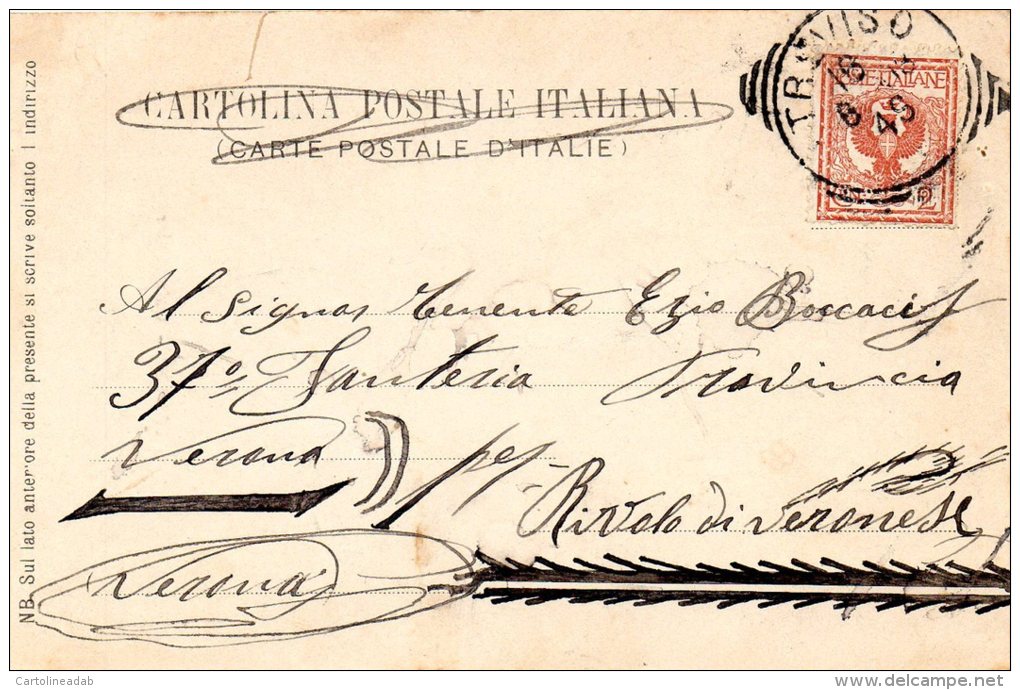 TREVISO
POSTE ITALIANE
2
CARTOLINA POSTALE ITALIANA
(CARTE POSTALE D'ITALIE)
NB. Sul lato anteriore della presente si scrive soltanto l indirizzo
Al Signor Tenente Ezio Boccacij
37º Fanteria Provincia
Verona per
Rivolo di Veronese
Verona
Cartolineadab
delcampe.net